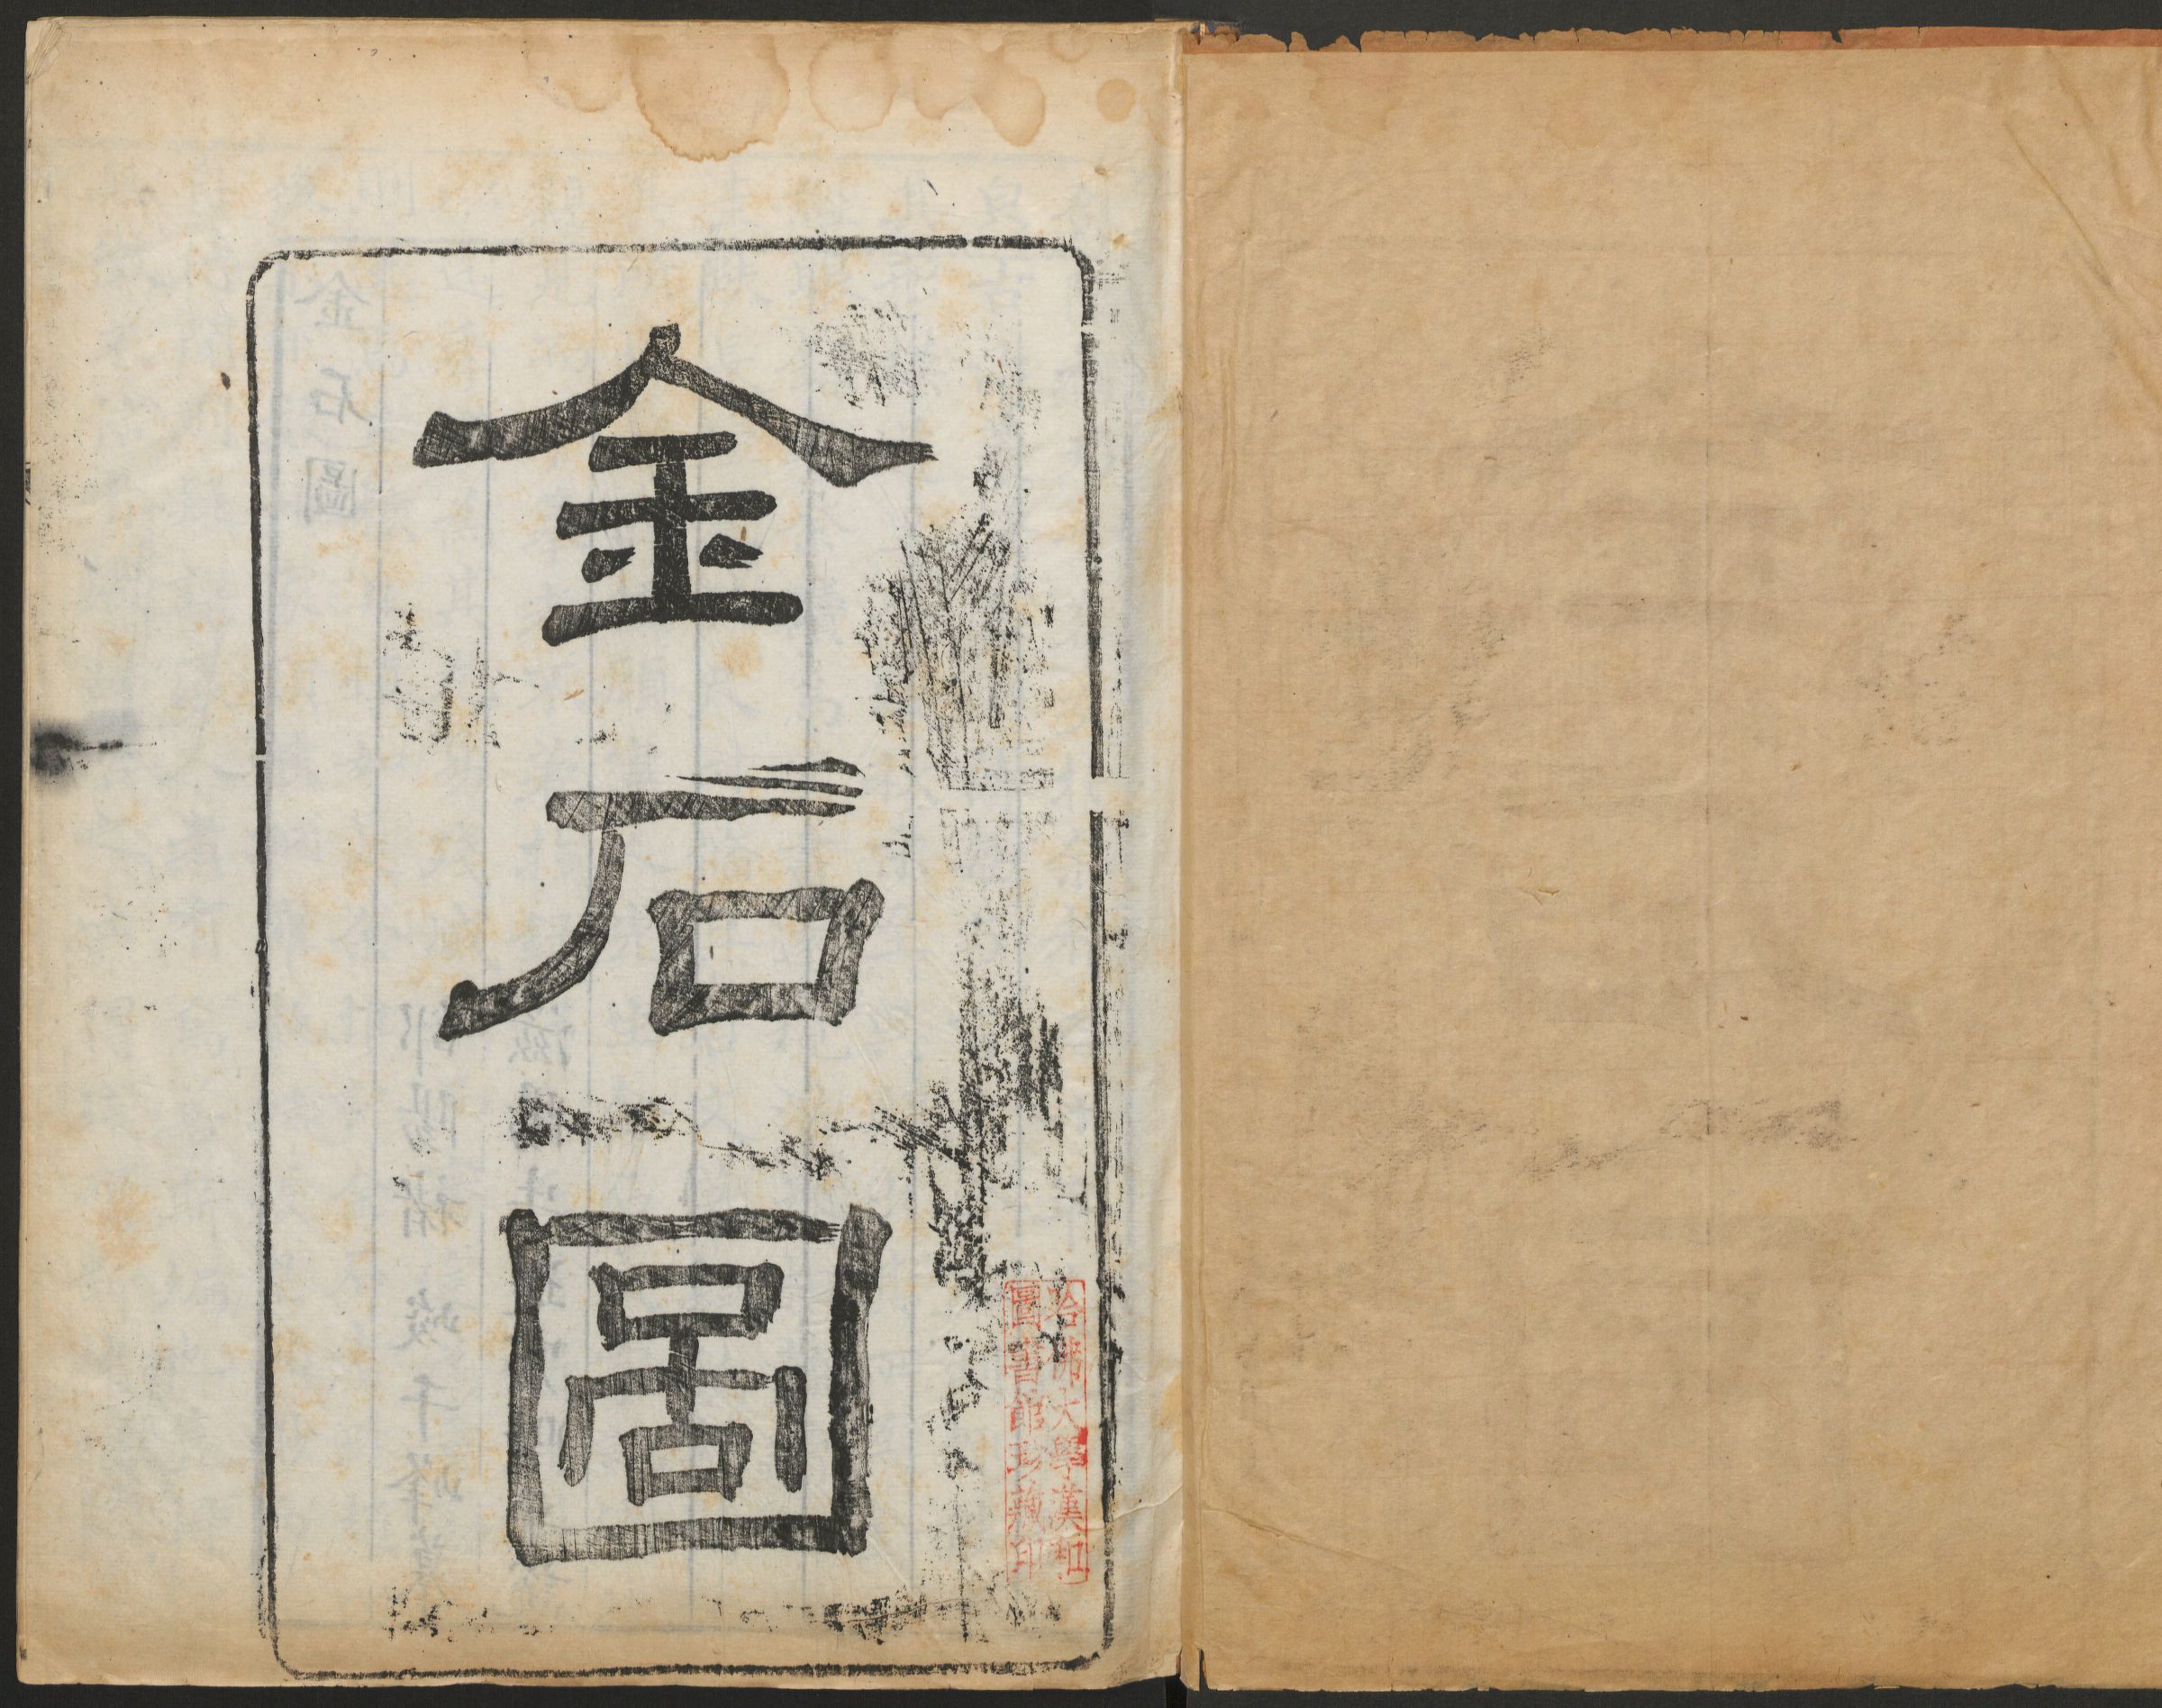 金石圖
哈佛大學漢和
圖書館珍藏印